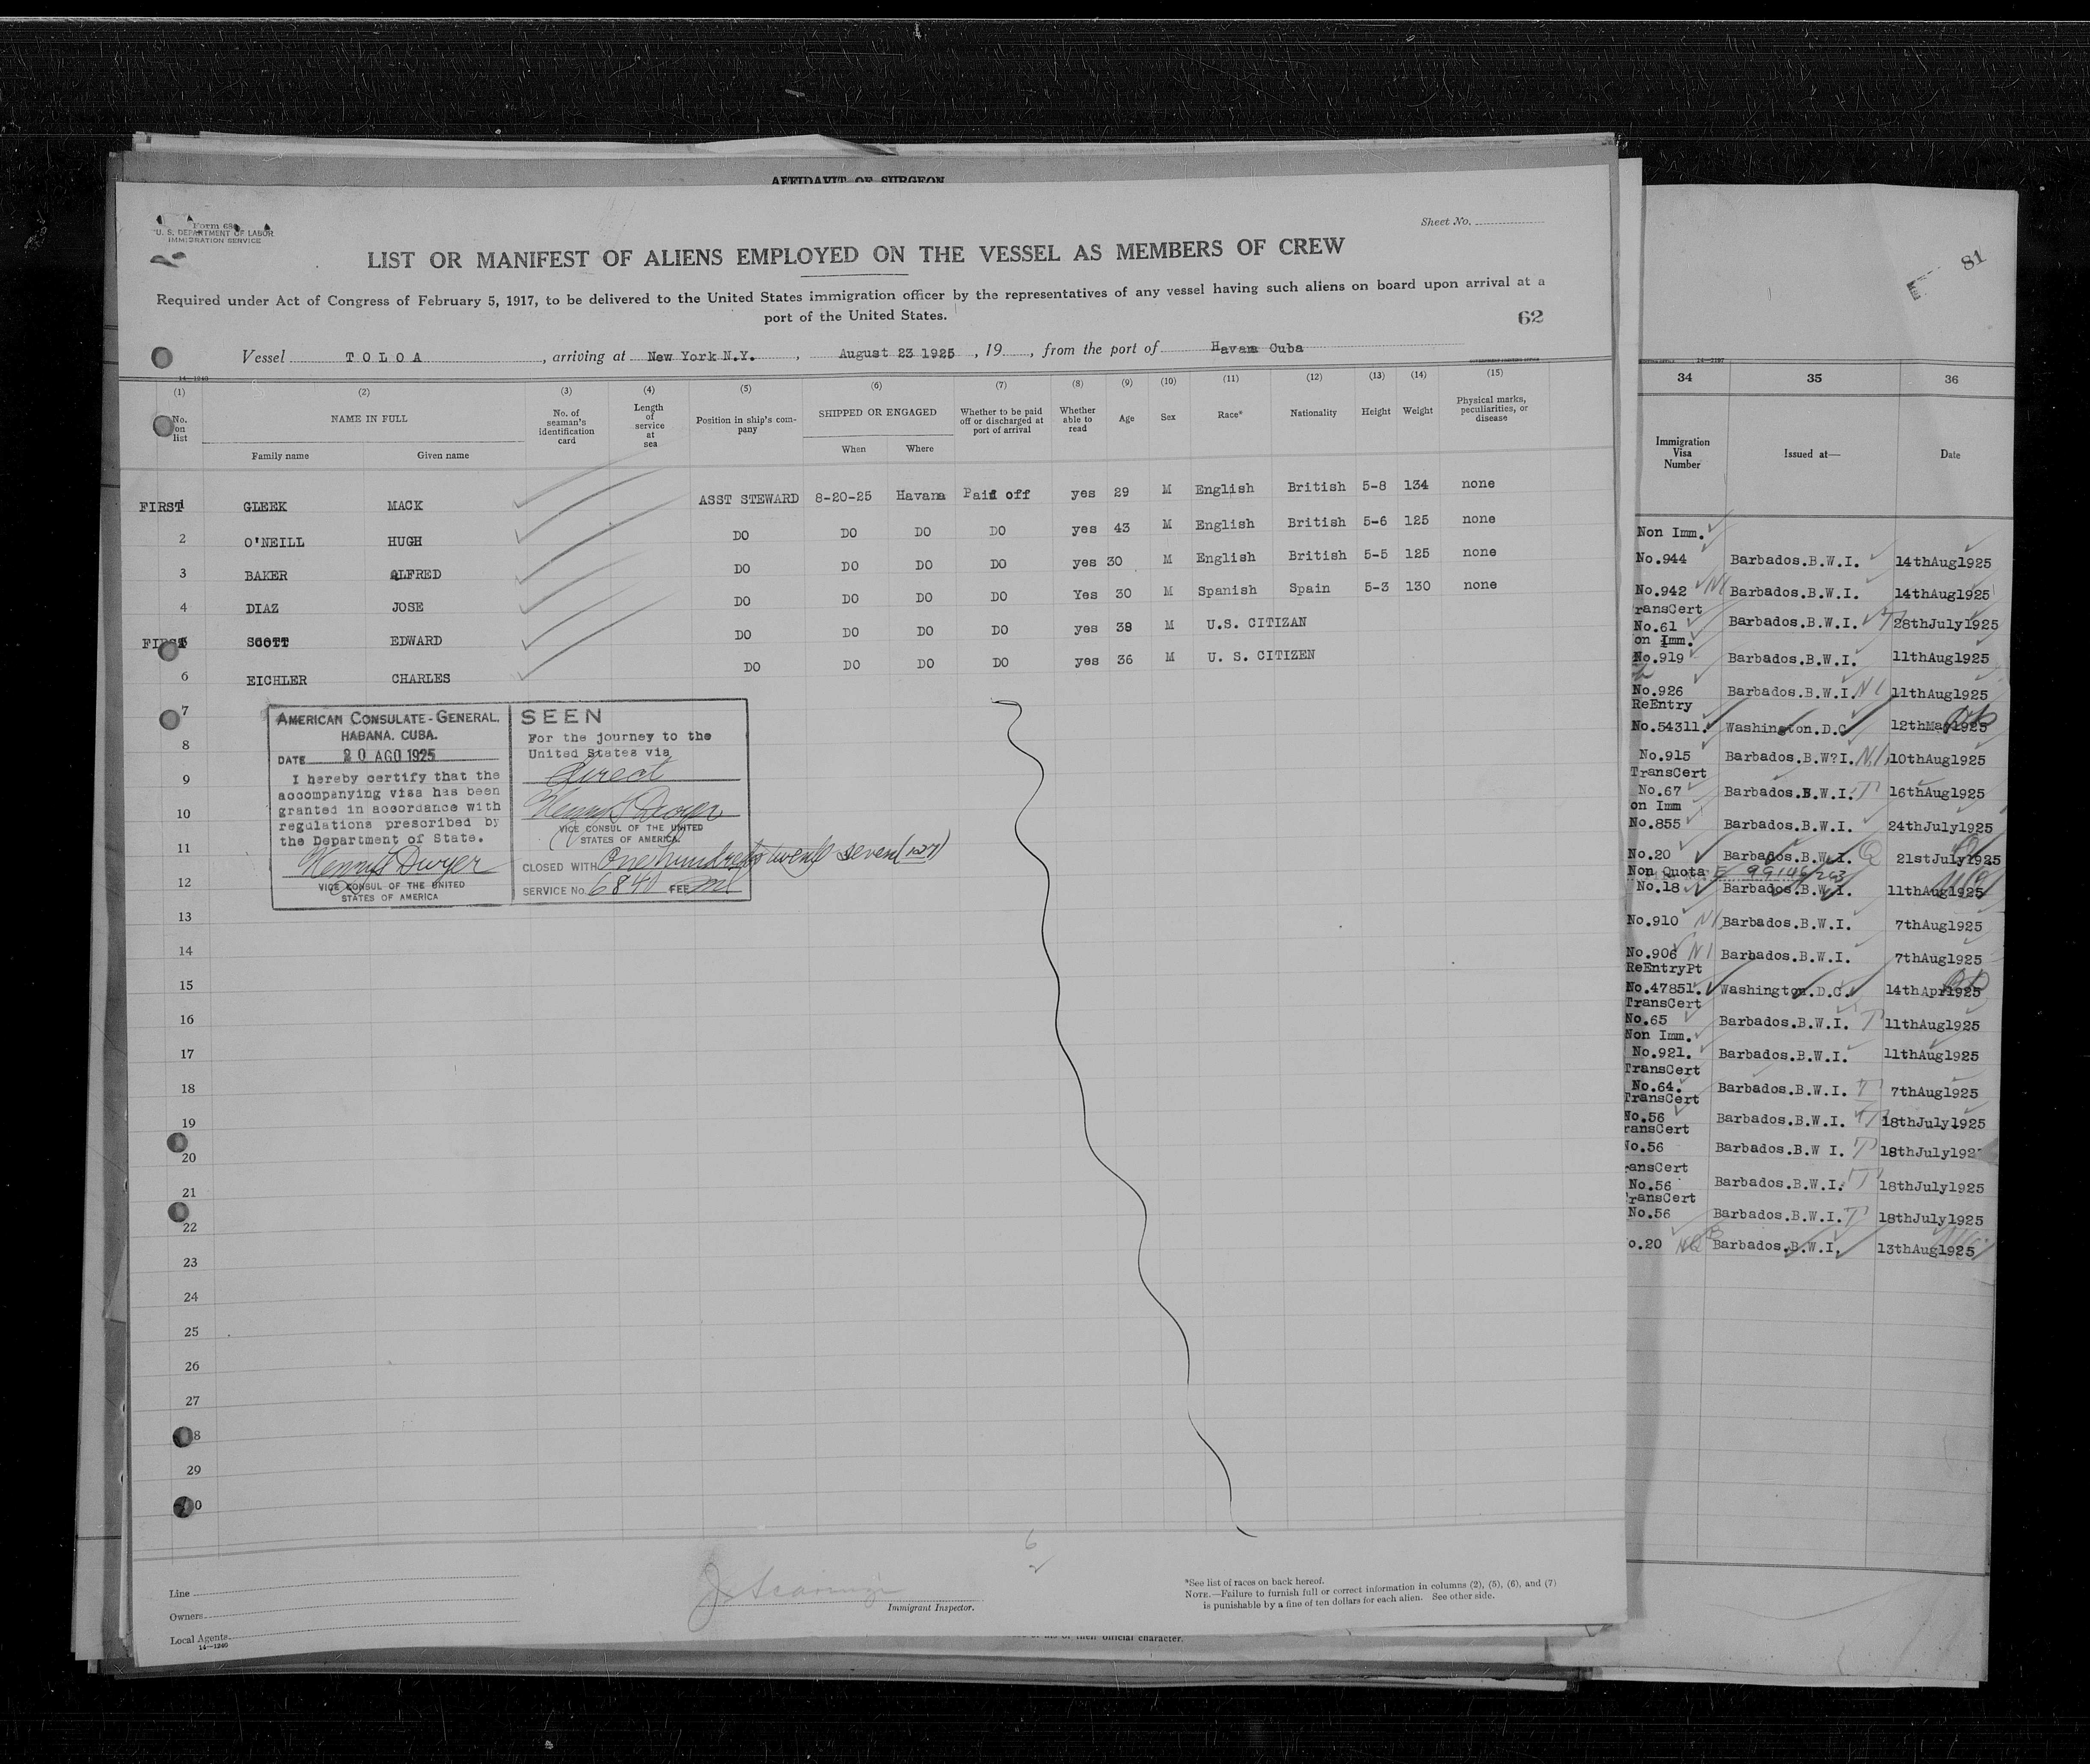 AFFIDAVIT OF SURGEON
Form 680
U. S. DEPARTMENT OF LABOR
IMMIGRATION SERVICE
Sheet No.
LIST OR MANIFEST OF ALIENS EMPLOYED ON THE VESSEL AS MEMBERS OF CREW
Required under Act of Congress of February 5, 1917, to be delivered to the United States immigration officer by the representatives of any vessel having such aliens on board upon arrival at a
port of the United States.
62
Vessel TOLOA, arriving at New York N.Y., August 23 1925, 19, from the port of Havana Cuba
14-1240
(1) (2) (3) (4) (5) (6) (7) (8) (9) (10) (11) (12) (13) (14) (15)
No. on list
NAME IN FULL
Family name Given name
No. of seaman's identification card
Length of service at sea
Position in ship's company
SHIPPED OR ENGAGED
When Where
Whether to be paid off or discharged at port of arrival
Whether able to read
Age Sex Race* Nationality Height Weight
Physical marks, peculiarities, or disease
FIRST 1 GLEEK MACK ASST STEWARD 8-20-25 Havana Paid off yes 29 M English British 5-8 134 none
2 O'NEILL HUGH DO DO DO DO yes 43 M English British 5-6 125 none
3 BAKER ALFRED DO DO DO DO yes 30 M English British 5-5 125 none
4 DIAZ JOSE DO DO DO DO Yes 30 M Spanish Spain 5-3 130 none
FIRST 5 SCOTT EDWARD DO DO DO DO yes 38 M U.S. CITIZAN
6 EICHLER CHARLES DO DO DO DO yes 36 M U. S. CITIZEN
7
8
9
10
11
12
13
14
15
16
17
18
19
20
21
22
23
24
25
26
27
8
29
0
AMERICAN CONSULATE-GENERAL,
HABANA, CUBA.
DATE 20 AGO 1925
I hereby certify that the
accompanying visa has been
granted in accordance with
regulations prescribed by
the Department of State.
Henry T Dwyer
VICE CONSUL OF THE UNITED
STATES OF AMERICA
SEEN
For the journey to the
United States via
direct
Henry T Dwyer
VICE CONSUL OF THE UNITED
STATES OF AMERICA.
CLOSED WITH One hundred twenty seven (127)
SERVICE No. 6840 FEE nil
6
Line
Owners
Local Agents
14-1240
Immigrant Inspector.
*See list of races on back hereof.
NOTE.—Failure to furnish full or correct information in columns (2), (5), (6), and (7)
is punishable by a fine of ten dollars for each alien. See other side.
their official character.
81
14-2197
34 35 36
Immigration Visa Number
Issued at—
Date
Non Imm.
No.944 Barbados.B.W.I. 14thAug1925
No.942 NI Barbados.B.W.I. 14thAug1925
ransCert
No.61 Barbados.B.W.I. T 28thJuly1925
on Imm.
No.919 Barbados.B.W.I. 11thAug1925
No.926 Barbados.B.W.I. NI 11thAug1925
ReEntry
No.54311. Washington.D.C 12thMay1925
No.915 Barbados.B.W?I. NI 10thAug1925
TransCert
No.67 Barbados.B.W.I. T 16thAug1925
on Imm
No.855 Barbados.B.W.I. 24thJuly1925
No.20 Barbados.B.W.I. Q 21stJuly1925
Non Quota
No.18 Barbados.B.W.I. 11thAug1925
No.910 NI Barbados.B.W.I. 7thAug1925
No.906 NI Barbados.B.W.I. 7thAug1925
ReEntryPt
No.47851. Washington.D.C. 14thApr1925
TransCert
No.65 Barbados.B.W.I. T 11thAug1925
Non Imm.
No.921. Barbados.B.W.I. 11thAug1925
TransCert
No.64. Barbados.B.W.I. T 7thAug1925
TransCert
No.56 Barbados.B.W.I. T 18thJuly1925
ransCert
No.56 Barbados.B.W I. T 18thJuly192
ansCert
No.56 Barbados.B.W.I. T 18thJuly1925
TransCert
No.56 Barbados.B.W.I. T 18thJuly1925
o.20 NQ Barbados.B.W.I. 13thAug1925